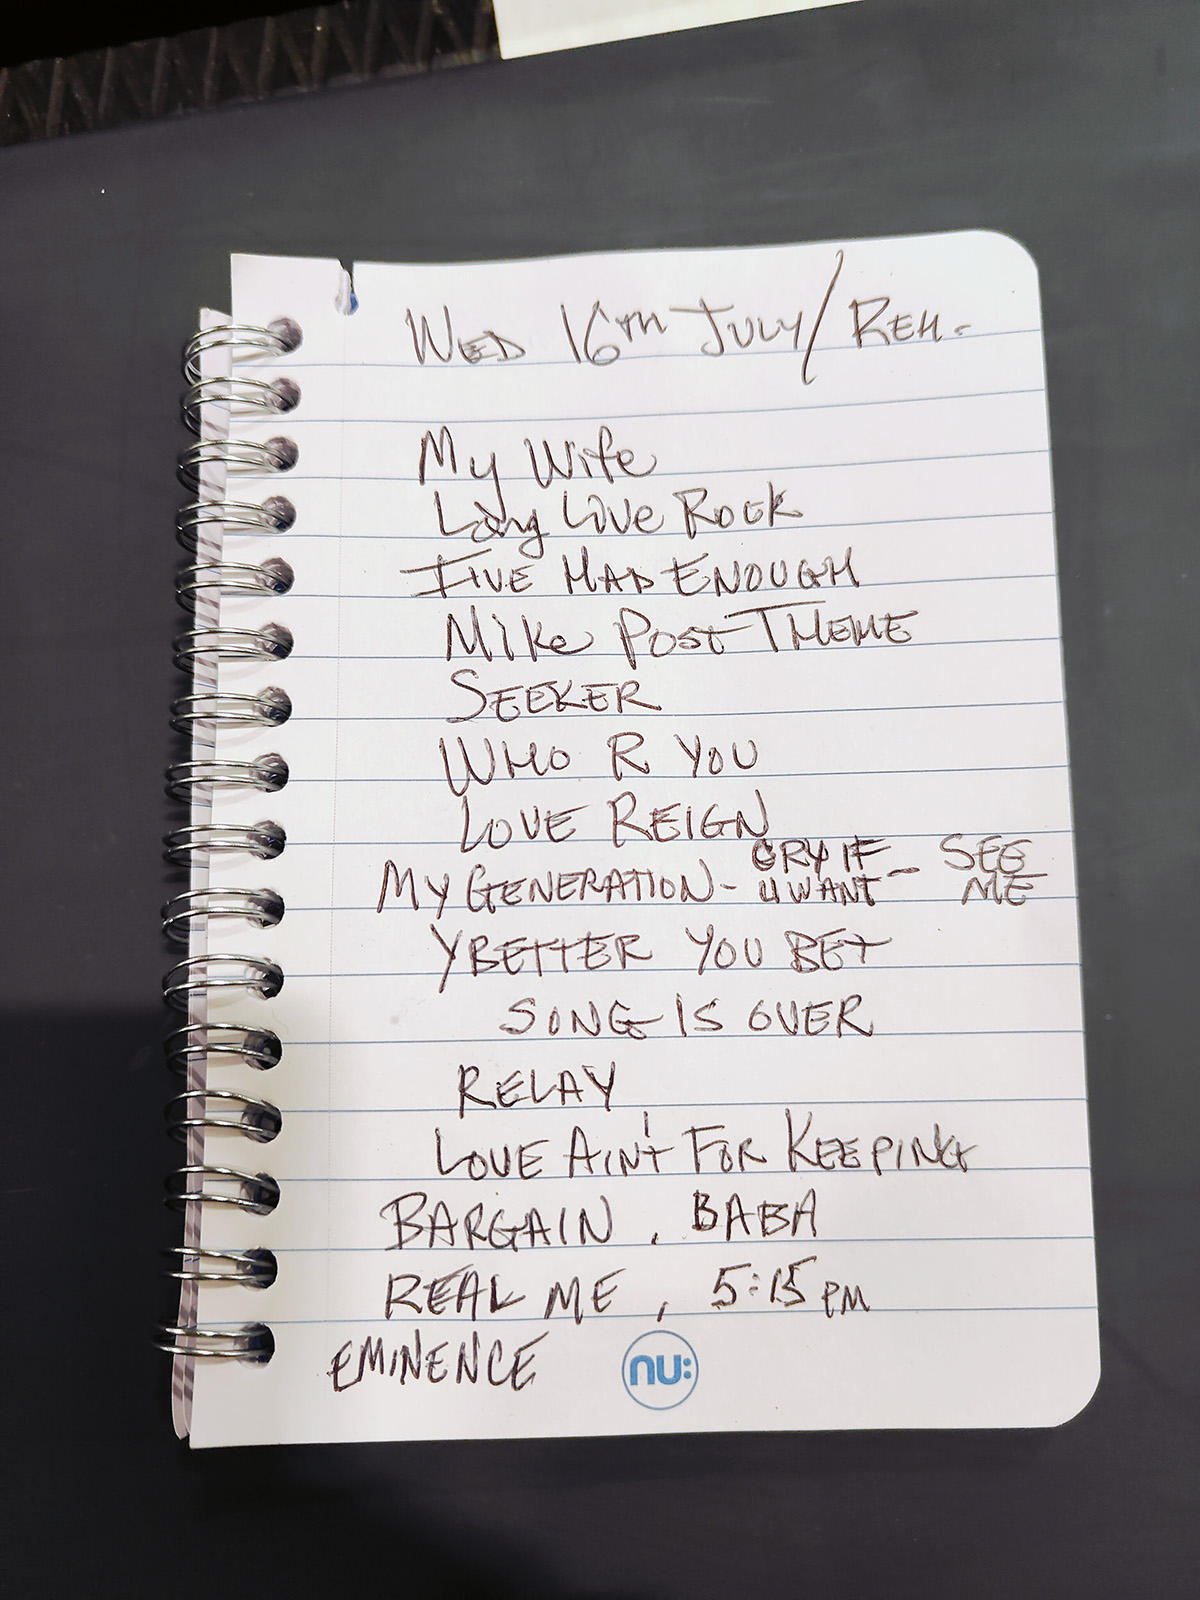 WED 16TH JULY/ REH.
My Wife
Long Live Rock
I'VE HAD ENOUGH
Mike Post THEME
SEEKER
WHO R YOU
LOVE REIGN
MY GENERATION - CRY IF U WANT - SEE ME
YBETTER YOU BET
SONG IS OVER
RELAY
LOVE AIN'T FOR KEEPING
BARGAIN, BABA
REAL ME, 5:15 PM
EMINENCE
nu: